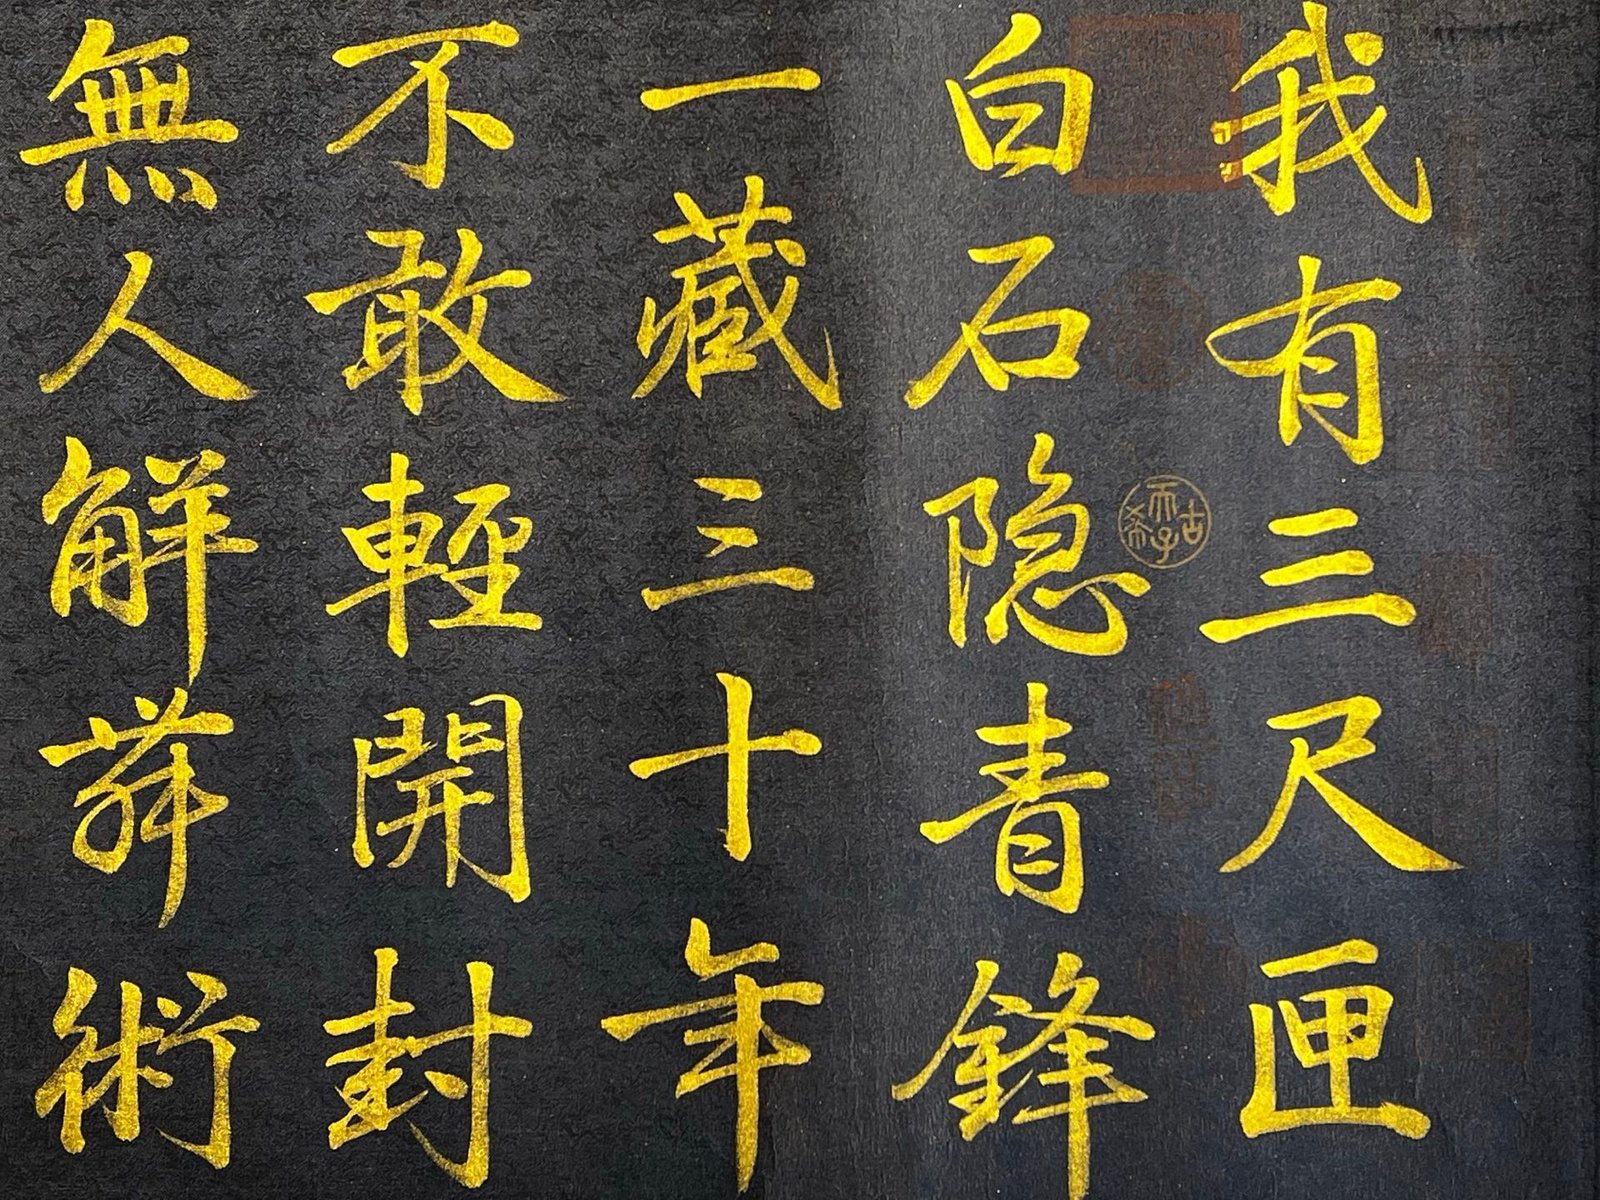 我有三尺匣
白石隐青锋
一藏三十年
不敢輕開封
無人解舞術